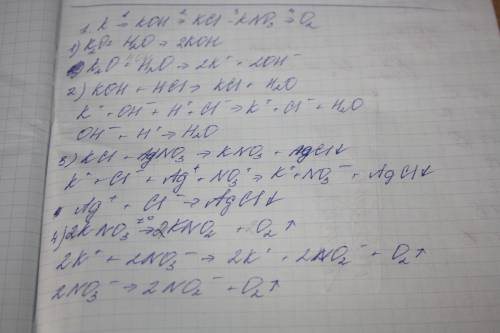 1. K → KOH → KCl → KNO₃ → O₂
1) K₂O + H₂O → 2KOH
K₂O + H₂O → 2K⁺ + 2OH⁻
2) KOH + HCl → KCl + H₂O
K⁺ + OH⁻ + H⁺ + Cl⁻ → K⁺ + Cl⁻ + H₂O
OH⁻ + H⁺ → H₂O
3) KCl + AgNO₃ → KNO₃ + AgCl↓
K⁺ + Cl⁻ + Ag⁺ + NO₃⁻ → K⁺ + NO₃⁻ + AgCl↓
Ag⁺ + Cl⁻ → AgCl↓
4) 2KNO₃ →t° 2KNO₂ + O₂↑
2K⁺ + 2NO₃⁻ → 2K⁺ + 2NO₂⁻ + O₂↑
2NO₃⁻ → 2NO₂⁻ + O₂↑